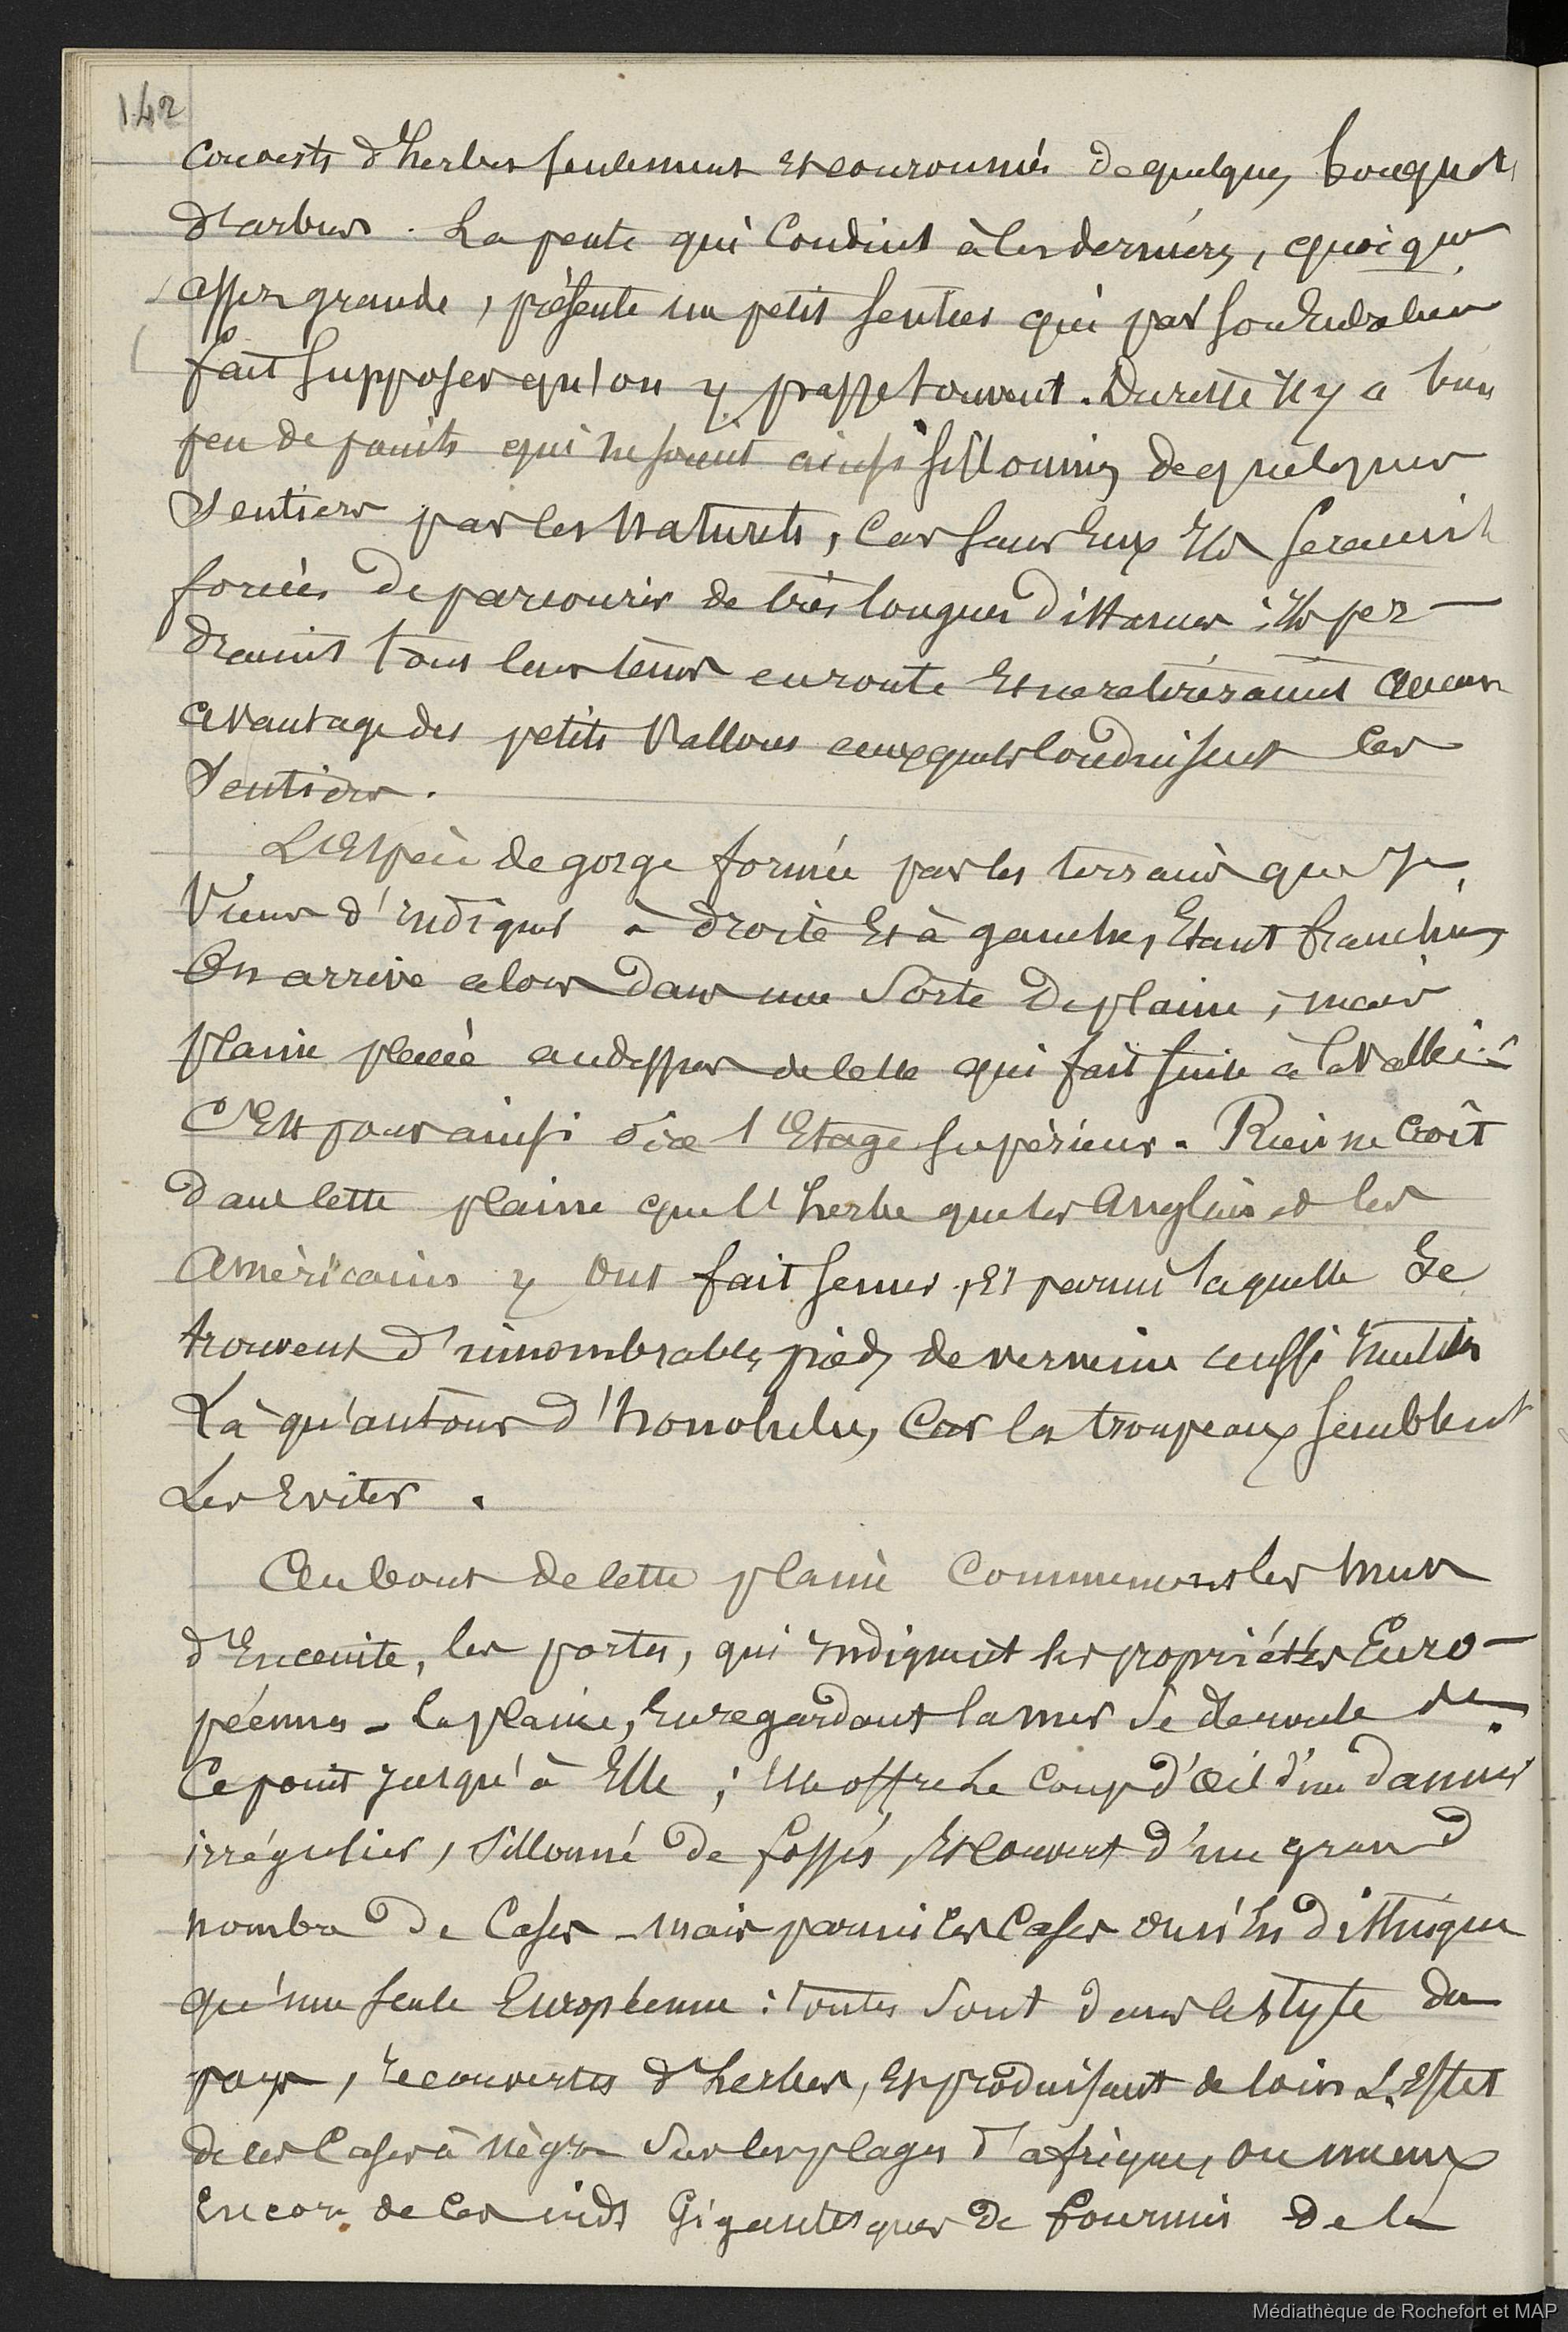 142
couverts d'herbes seulement et couronnés de quelques bouquets
d'arbres. La pente qui conduit à ces derniers, quoique
assez grande, présente un petit sentier qui par son
fait supposer qu'on y passe souvent. Du reste il y a bien
peu de points qui ne soient ainsi sillonnés de quelques
sentiers par les naturels, car sans eux ils seraient
forcés de parcourir de très longues distances ; ils per-
draient tous leur tems en route et ne retireraient aucun
avantage des petits vallons auxquels conduisent ces
sentiers.
L'espèce de gorge formée par les terrains que je
viens d'indiquer à droite et à gauche, étant franchie,
on arrive alors dans une sorte de plaine, mais
plaine placée au dessus de celle qui fait suite à la vallée :
c'est pour ainsi dire l'étage supérieur. Rien ne croît
dans cette plaine que l'herbe que les Anglais et les
Américains y ont fait semer, et parmi laquelle se
trouvent d'innombrables pieds de verveine aussi inutiles
là qu'autour d'honolulu, car les troupeaux semblent
les éviter.
Au bout de cette plaine commencent les murs
d'enceinte, les portes, qui indiquent les propriétés Euro-
péennes - la plaine, en regardant la mer se déroule de
ce point jusqu'à elle ; elle offre le coup d'œil d'un damier
irrégulier, sillonné de fossés, et couvert d'un grand
nombre de cases - mais parmi ces cases on n'en distingue
qu'une seule Européenne : toutes sont dans le style du
pays, recouvertes d'herbes, et produisant de loin l'effet
de ces cases à nègre sur les plages d'afrique, ou mieux
encore de ces nids gigantesques de fourmis de la